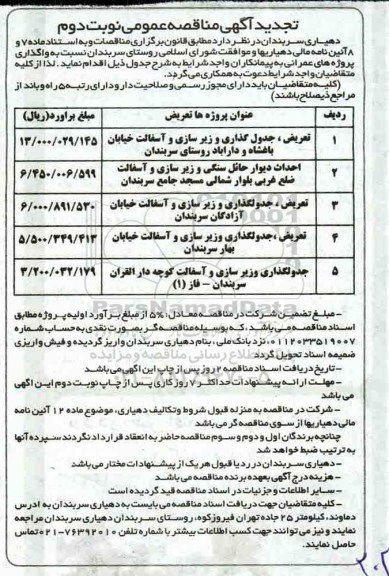 تجدید آگهی مناقصه عمومی نوبت دوم
دهیاری سربندان در نظر دارد مطابق قانون برگزاری مناقصات و به استناد ماده ۷ و
۸ آئین نامه مالی دهیاریها و موافقت شورای اسلامی روستای سربندان نسبت به واگذاری
پروژه های عمرانی به پیمانکاران واجد شرایط به شرح جدول ذیل اقدام نماید. لذا از کلیه
متقاضیان واجد شرایط دعوت به همکاری می گردد.
(کلیه متقاضیان باید دارای مجوز رسمی و صلاحیت دار و دارای رتبه ۵ راه و باند از
مراجع ذیصلاح باشند)
ردیف عنوان پروژه ها تعریض مبلغ برآورد(ریال)
۱ تعریض ، جدول گذاری و زیر سازی و آسفالت خیابان باغشاه و داراباد روستای سربندان ۱۳/۰۰۰/۰۲۹/۱۴۵
۲ احداث دیوار حائل سنگی و زیر سازی و آسفالت ضلع غربی بلوار شمالی مسجد جامع سربندان ۶/۴۵۰/۰۰۶/۵۹۹
۳ تعریض ، جدولگذاری و زیر سازی و آسفالت خیابان آزادگان سربندان ۶/۰۰۰/۸۹۱/۵۳۰
۴ تعریض ،جدولگذاری وزیر سازی و آسفالت خیابان بهار سربندان ۵/۵۰۰/۳۴۹/۴۱۳
۵ جدولگذاری وزیر سازی و آسفالت کوچه دار القران سربندان – فاز (۱) ۳/۲۰۰/۰۳۲/۱۷۹
ParsNamadData
– مبلغ تضمین شرکت در مناقصه معادل: ۵% از مبلغ برآورد اولیه پروژه مطابق
اسناد مناقصه می باشد ، که بوسیله مناقصه گر بصورت نقدی به حساب شماره
۰۱۱۲۰۳۳۵۱۹۰۰۷ نزد بانک ملی ، بنام دهیاری سربندان واریز گردیده و فیش واریزی
ضمیمه اسناد تحویل گردد
– تاریخ دریافت اسناد مناقصه ۲ روز پس از چاپ این آگهی می باشد
– مهلت ارائه پیشنهادات حداکثر ۷ روز کاری پس از چاپ نوبت دوم این آگهی
می باشد
– شرکت در مناقصه به منزله قبول شروط و تکالیف دهیاری، موضوع ماده ۱۲ آئین نامه
مالی دهیاریها از سوی مناقصه گر می باشد
چنانچه برندگان اول و دوم و سوم مناقصه حاضر به انعقاد قرارداد نگردند سپرده آنها
به ترتیب ضبط خواهد شد
– دهیاری سربندان در رد یا قبول هر یک از پیشنهادات مختار می باشد
– هزینه درج آگهی بعهده برنده مناقصه می باشد
– سایر اطلاعات و جزئیات در اسناد مناقصه قید گردیده است
– کلیه متقاضیان جهت دریافت اسناد مناقصه می بایست به دهیاری سربندان به ادرس
دماوند، کیلومتر ۲۵ جاده تهران فیروزکوه، روستای سربندان دهیاری سربندان مراجعه
نمایند و نیز می توانند جهت کسب اطلاعات بیشتر با شماره تلفن ۷۶۳۹۲۰۱۰-۰۲۱ تماس
حاصل نمایند.